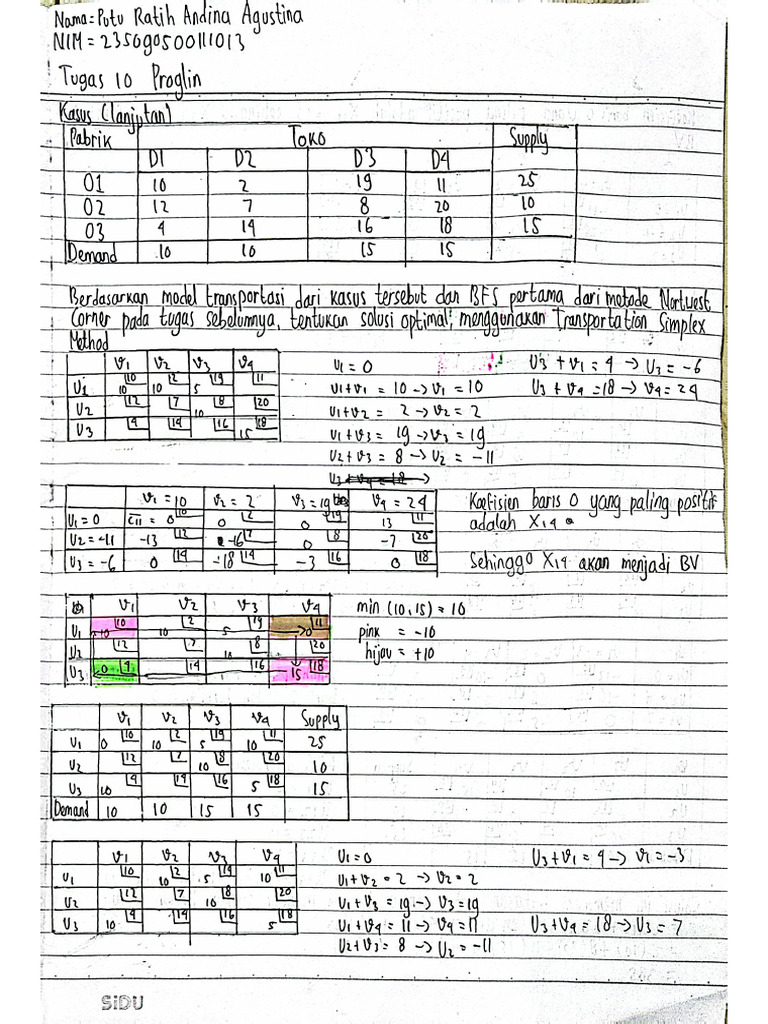 Nama = Putu Ratih Andina Agustina
NIM = 235090500111013
Tugas 10 Proglin
Kasus (lanjutan)
Pabrik Toko Supply
D1 D2 D3 D4
O1 10 2 19 11 25
O2 12 7 8 20 10
O3 4 14 16 18 15
Demand 10 10 15 15
Berdasarkan model transportasi dari kasus tersebut dan BFS pertama dari metode Nortwest
Corner pada tugas sebelumnya, tentukan solusi optimal, menggunakan Transportation Simplex
Method
V1 V2 V3 V4
U1 10 10 10 2 5 19 11
U2 12 7 10 8 20
U3 4 14 16 15 18
U1 = 0
U1+V1 = 10 → V1 = 10
U1+V2 = 2 → V2 = 2
U1+V3 = 19 → V3 = 19
U2+V3 = 8 → U2 = -11
U3 + V1 = 4 → U3 = -6
U3 + V4 = 18 → V4 = 24
V1 = 10 V2 = 2 V3 = 19 V4 = 24
U1 = 0 c11 = 0 10 0 2 0 19 13 11
U2 = -11 -13 12 -16 7 0 8 -7 20
U3 = -6 0 14 -18 14 -3 16 0 18
Koefisien baris 0 yang paling positif
adalah X14
Sehingga X14 akan menjadi BV
V1 V2 V3 V4
U1 10 10 10 2 5 19 0 11
U2 12 7 10 8 20
U3 0 4 14 16 15 18
min (10, 15) = 10
pink = -10
hijau = +10
V1 V2 V3 V4 Supply
U1 0 10 10 2 5 19 10 11 25
U2 12 7 10 8 20 10
U3 10 4 14 16 5 18 15
Demand 10 10 15 15
V1 V2 V3 V4
U1 10 10 2 5 19 10 11
U2 12 7 10 8 20
U3 10 4 14 16 5 18
U1 = 0
U1+V2 = 2 → V2 = 2
U1+V3 = 19 → V3 = 19
U1+V4 = 11 → V4 = 11
U2+V3 = 8 → U2 = -11
U3+V1 = 4 → V1 = -3
U3+V4 = 18 → U3 = 7
SiDU